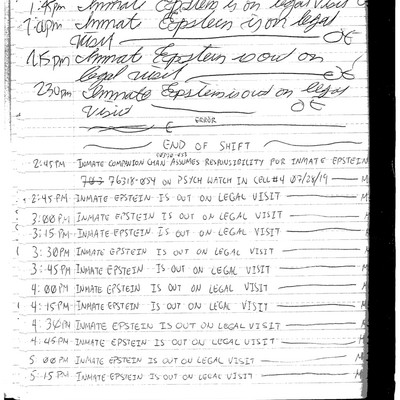 1:45pm Inmate Epstein is on legal visit OE
2:00pm Inmate Epstein is on legal
visit OE
2:15pm Inmat Epstein is out on
legal visit OE
2:30pm Inmate Epstein is out on legal
visit OE
ERROR
END OF SHIFT
2:45PM INMATE COMPANION CHAN ASSUMES RESPONSIBILITY FOR INMATE EPSTEIN
76318-054 ON PSYCH WATCH IN CELL #4 07/28/19
2:45PM INMATE EPSTEIN IS OUT ON LEGAL VISIT
3:00PM INMATE EPSTEIN IS OUT ON LEGAL VISIT
3:15PM INMATE EPSTEIN IS OUT ON LEGAL VISIT
3:30PM INMATE EPSTEIN IS OUT ON LEGAL VISIT
3:45PM INMATE EPSTEIN IS OUT ON LEGAL VISIT
4:00PM INMATE EPSTEIN IS OUT ON LEGAL VISIT
4:15PM INMATE EPSTEIN IS OUT ON LEGAL VISIT
4:30PM INMATE EPSTEIN IS OUT ON LEGAL VISIT
4:45PM INMATE EPSTEIN IS OUT ON LEGAL VISIT
5:00PM INMATE EPSTEIN IS OUT ON LEGAL VISIT
5:15PM INMATE EPSTEIN IS OUT ON LEGAL VISIT